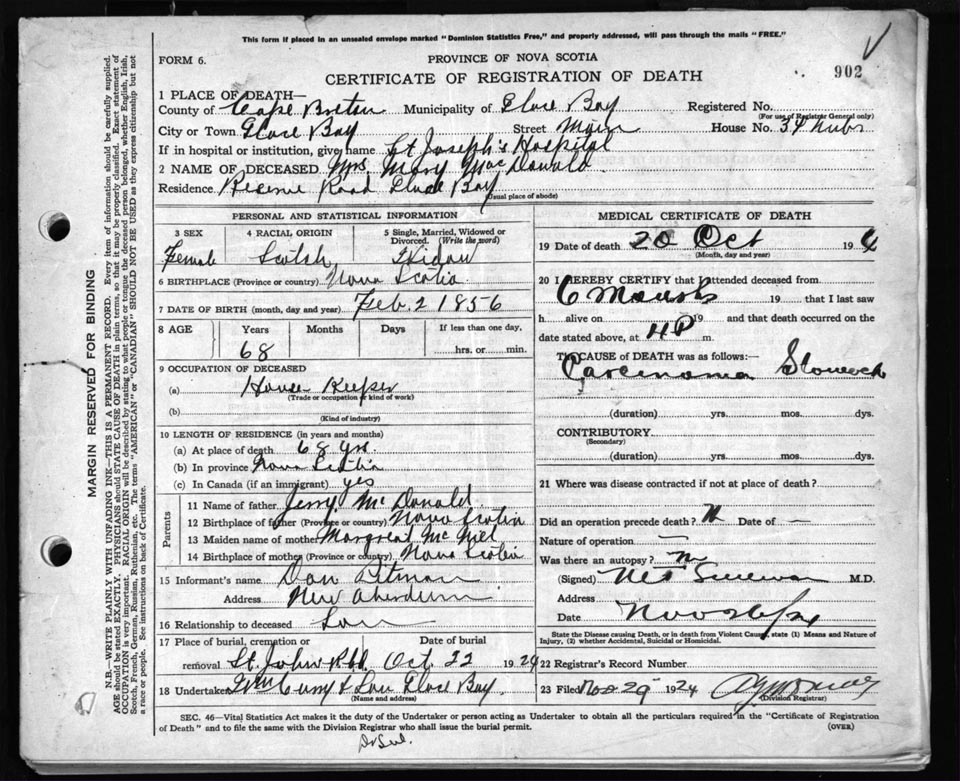 This form if placed in an unsealed envelope marked "Dominion Statistics Free," and properly addressed, will pass through the mails "FREE."
FORM 6.
PROVINCE OF NOVA SCOTIA
902
CERTIFICATE OF REGISTRATION OF DEATH
1 PLACE OF DEATH—
County of Cape Breton Municipality of Glace Bay Registered No.
(For use of Registrar General only)
City or Town Glace Bay Street Main House No. 34
If in hospital or institution, give name St Joseph's Hospital
2 NAME OF DECEASED Mrs. Mary MacDonald
Residence Reserve Road Glace Bay
(Usual place of abode)
PERSONAL AND STATISTICAL INFORMATION
3 SEX
Female
4 RACIAL ORIGIN
Scotch
5 Single, Married, Widowed or Divorced. (Write the word)
Widow
6 BIRTHPLACE (Province or country) Nova Scotia
7 DATE OF BIRTH (month, day and year) Feb. 2 1856
8 AGE
Years
68
Months
Days
If less than one day,
hrs. or min.
9 OCCUPATION OF DECEASED
(a) House Keeper
(Trade or occupation or kind of work)
(b)
(Kind of industry)
10 LENGTH OF RESIDENCE (in years and months)
(a) At place of death 68 yrs
(b) In province Nova Scotia
(c) In Canada (if an immigrant) yes
Parents
11 Name of father Jerry McDonald
12 Birthplace of father (Province or country) Nova Scotia
13 Maiden name of mother Margreat McNiel
14 Birthplace of mother (Province or country) Nova Scotia
15 Informant's name Dan Pitman
Address New Aberdeen
16 Relationship to deceased Son
17 Place of burial, cremation or removal St. John Oct 22 1924
Date of burial
18 Undertaker Curry & Son Glace Bay
(Name and address)
MEDICAL CERTIFICATE OF DEATH
19 Date of death 20 Oct 19 4
(Month, day and year)
20 I HEREBY CERTIFY that I attended deceased from
6 Months 19 that I last saw
h alive on 19 and that death occurred on
date stated above, at m.
The CAUSE OF DEATH was as follows:—
Carcinoma Stomach
(duration) yrs. mos. dys.
CONTRIBUTORY
(Secondary)
(duration) yrs. mos. dys.
21 Where was disease contracted if not at place of death?
Did an operation precede death? Date of —
Nature of operation —
Was there an autopsy? no
(Signed) M.D.
Address
Date
State the Disease causing Death, or in death from Violent Causes, state (1) Means and Nature of Injury, (2) whether Accidental, Suicidal or Homicidal.
22 Registrar's Record Number
23 Filed Nov 29 1924
(Division Registrar)
SEC. 46—Vital Statistics Act makes it the duty of the Undertaker or person acting as Undertaker to obtain all the particulars required in the "Certificate of Registration of Death" and to file the same with the Division Registrar who shall issue the burial permit.
(OVER)
MARGIN RESERVED FOR BINDING
N.B.—WRITE PLAINLY WITH UNFADING INK—THIS IS A PERMANENT RECORD. Every item of information should be carefully supplied.
AGE should be stated EXACTLY. PHYSICIANS should STATE CAUSE OF DEATH in plain terms, so that it may be properly classified. Exact statement of
OCCUPATION is very important. RACIAL ORIGIN will be described by stating to what people or tongue the deceased person belonged, whether English, Irish,
Scotch, French, German, Russian, Ruthenian, etc. The terms "AMERICAN" or "CANADIAN" SHOULD NOT BE USED as they express citizenship but not
a race or people. See instructions on back of Certificate.